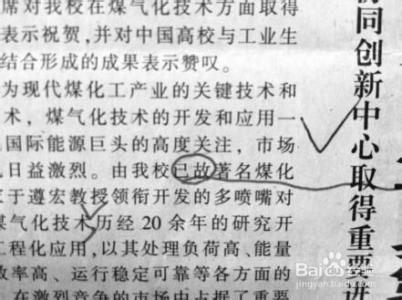 席对我校在煤气化技术方面取得
表示祝贺,并对中国高校与工业生
结合形成的成果表示赞叹。
为现代煤化工产业的关键技术和
术,煤气化技术的开发和应用一
国际能源巨头的高度关注,市场
日益激烈。由我校已故著名煤化
于遵宏教授领衔开发的多喷嘴对
煤气化技术历经20余年的研究开
工程化应用,以其处理负荷高、能量
效率高、运行稳定可靠等各方面的
在激烈竞争的市场中占据了重要
同创新中心取得重要进
Baidu百科经验
jingyan.baidu.com